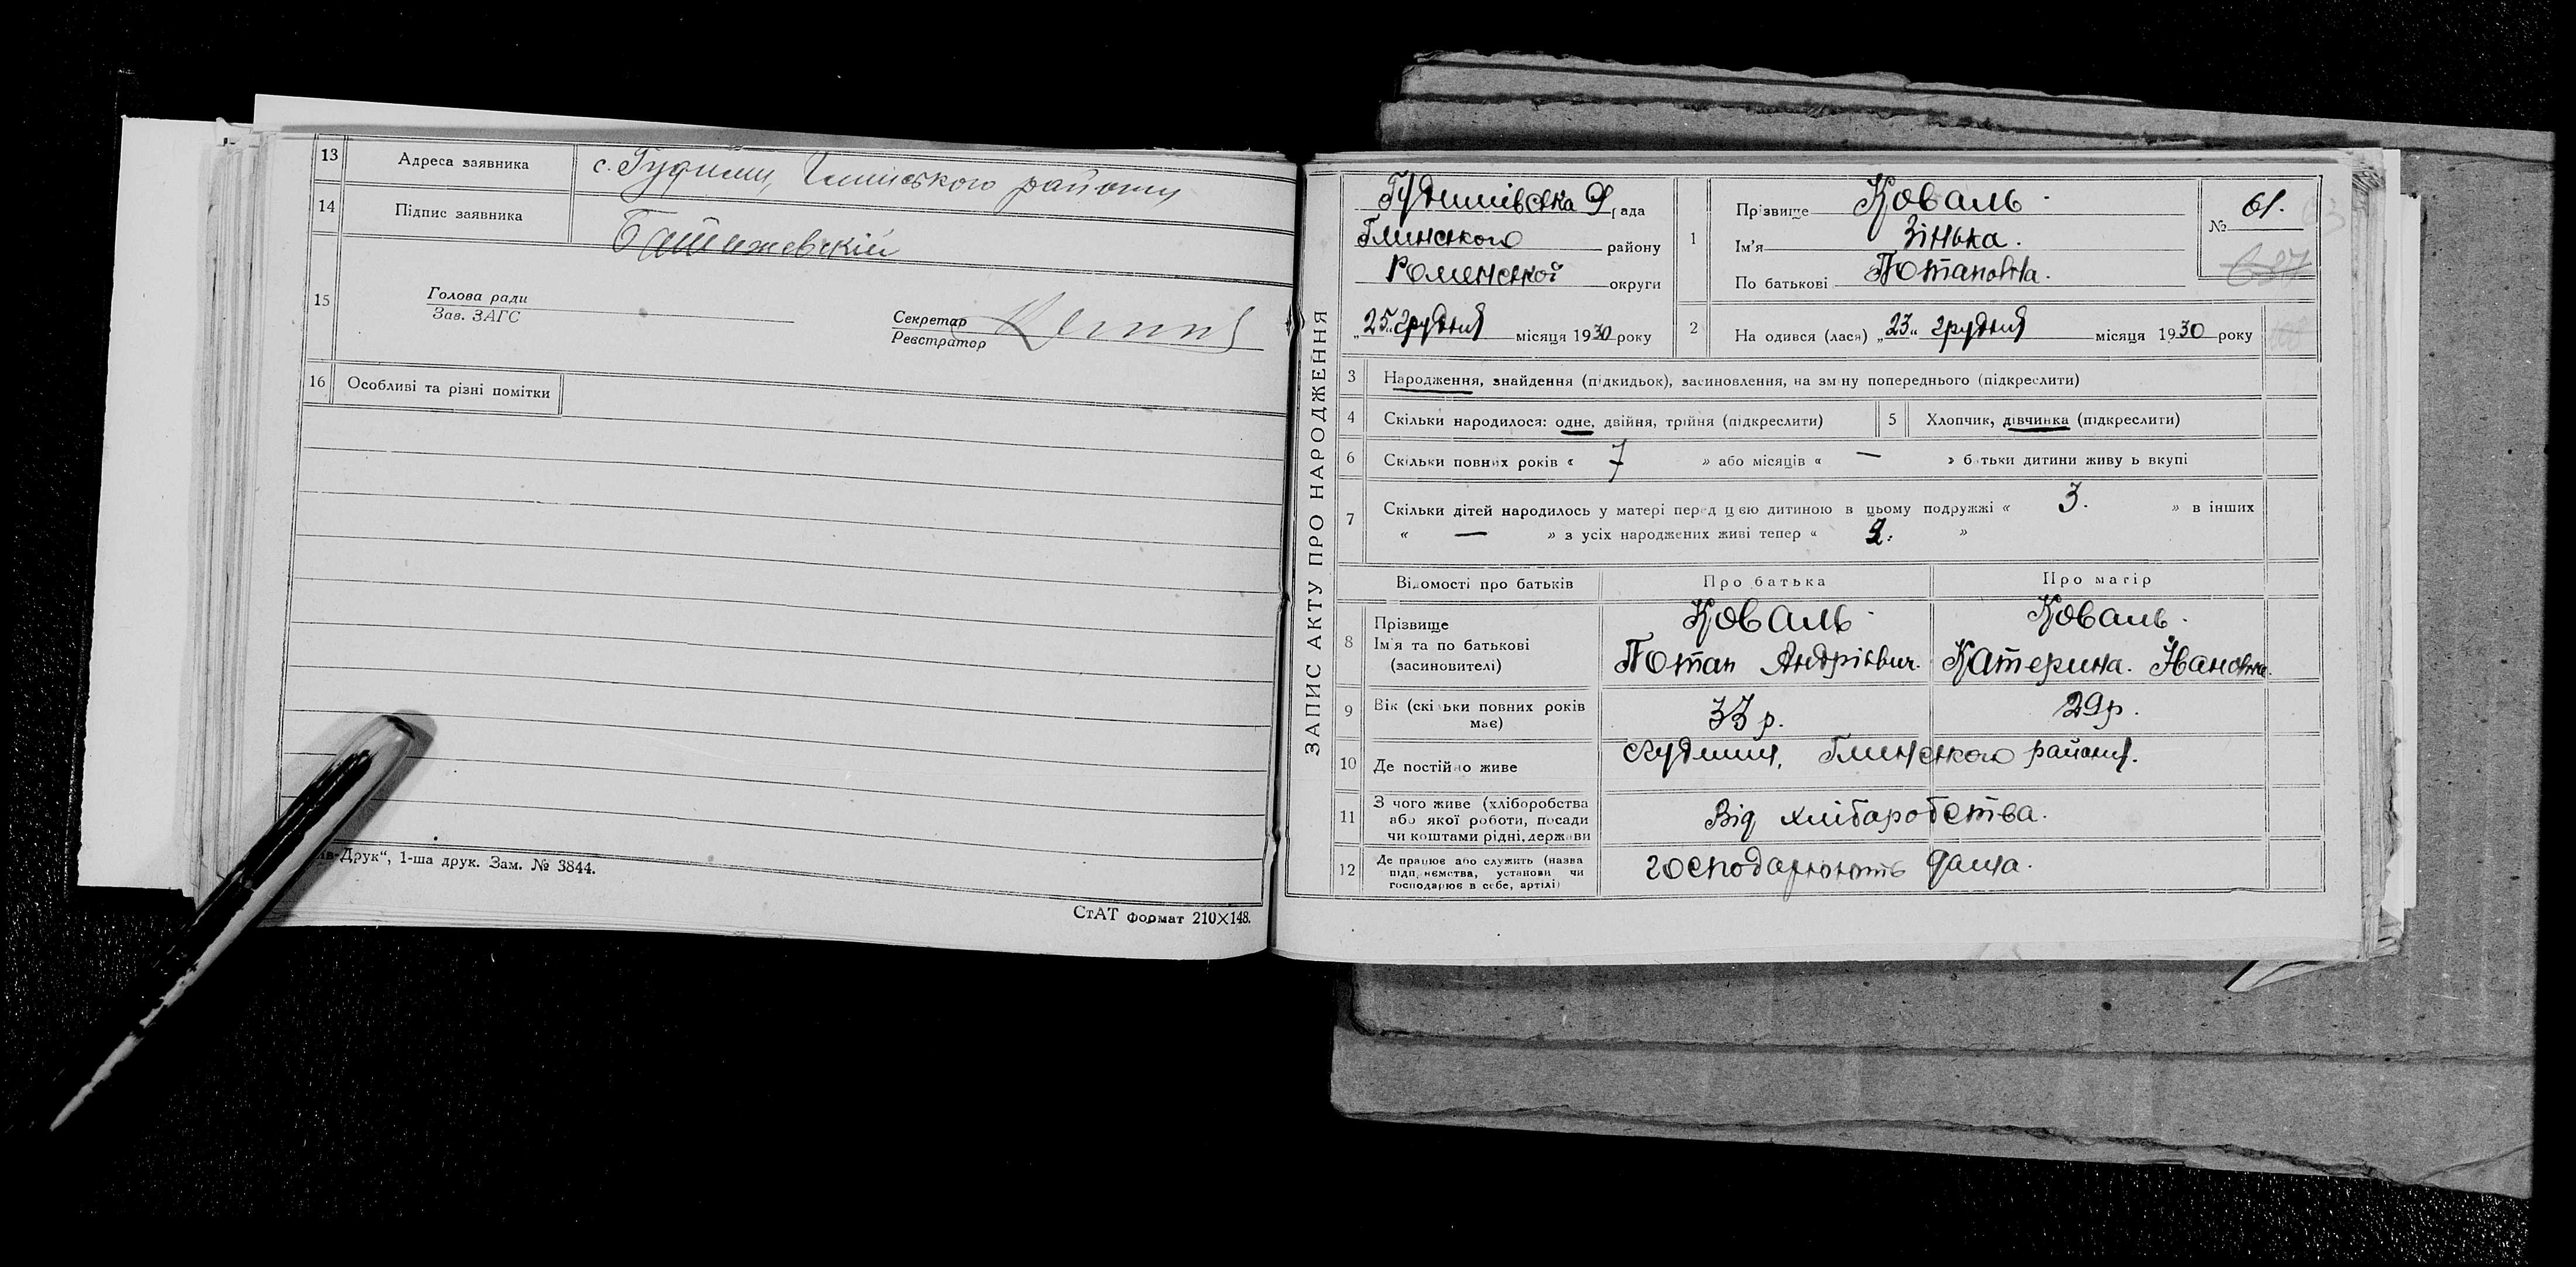 13 Адреса заявника с. Гудими, Глинського району
14 Підпис заявника
15 Голова ради
Зав. ЗАГС
Секретар
Реєстратор
16 Особливі та різні помітки
1-ша друк. Зам. № 3844.
СтАТ формат 210×148.
ЗАПИС АКТУ ПРО НАРОДЖЕННЯ
Гудимівська рада
Глинського району
Роменской округи
„25„ грудня місяця 1930 року
1 Прізвище Коваль
Ім'я Зінька.
По батькові Потаповна.
№ 61.
687
2 На одився (лася) „23„ грудня місяця 1930 року
3 Народження, знайдення (підкидьок), засиновлення, на зміну попереднього (підкреслити)
4 Скільки народилося: одне, двійня, трійня (підкреслити) 5 Хлопчик, дівчинка (підкреслити)
6 Скільки повних років « 7 » або місяців « — » батьки дитини живуть вкупі
7 Скільки дітей народилось у матері перед цією дитиною в цьому подружжі « 3. » в інших
« — » з усіх народжених живі тепер « 2. »
Відомості про батьків Про батька Про матір
8 Прізвище Коваль Коваль.
Ім'я та по батькові Потап Андрієвич. Катерина. Івановна.
(засиновителі)
9 Вік (скільки повних років має) 33 р. 29 р.
10 Де постійно живе с Гудими, Глинського району.
11 З чого живе (хліборобства
або якої роботи, посади
чи коштами рідні, держави Від хліборобства.
12 Де працює або служить (назва
підприємства, установи чи
господарює в себе, артілі) господарюють дома.